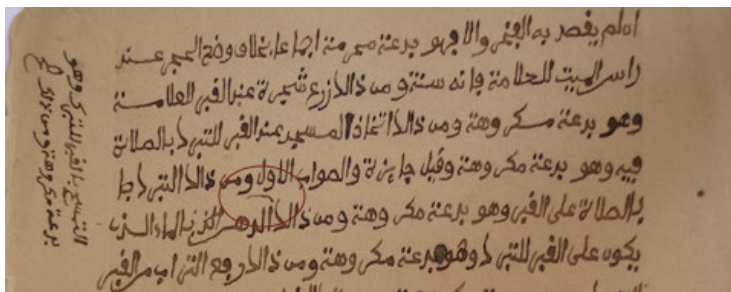 ان لم يقصد به الفخر والا فهو بدعة محرمة اجماعا بخلاف وضع الحجر عند
راس الميت للعلامة فانه سنة ومن ذالك زرع شجرة عند القبر للعلامة
وهو بدعة مكروهة ومن ذالك اتخاذ المسجد عند القبر للتبرك بالصلاة
فيه وهو بدعة مكروهة وقيل جايزة والصواب الاول ومن ذالك التبرك
بالصلاة على القبر وهو بدعة مكروهة ومن ذالك بالماء الذي
يكون على القبر للتبرك وهو بدعة مكروهة ومن ذالك رفع التراب من القبر
التمسح بالقبر للتبرك وهو
بدعة مكروهة ومن ذالك